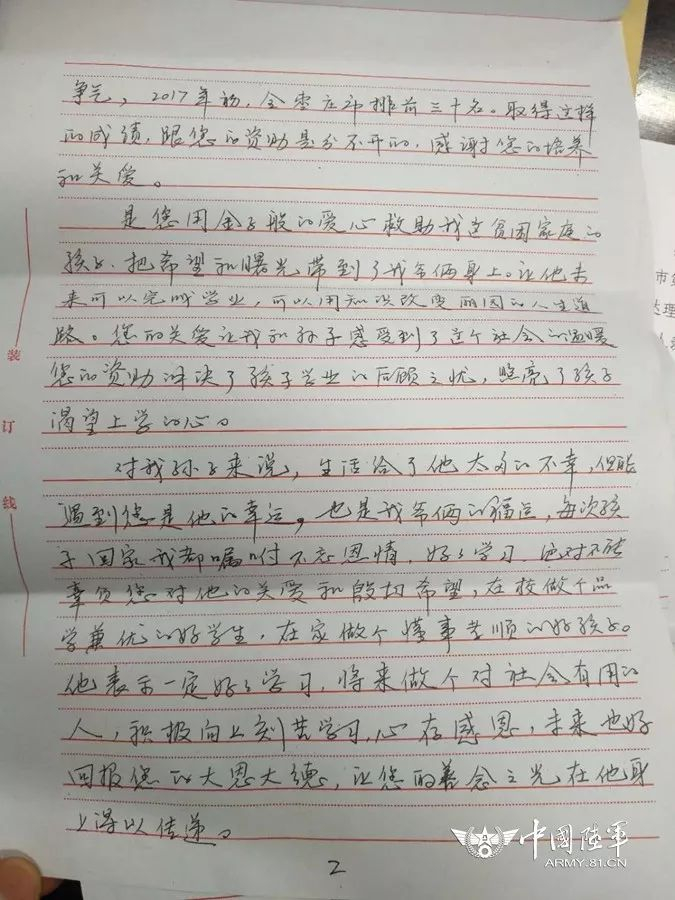 争气，2017年初，全枣庄市排前三十名。取得这样
的成绩，跟您的资助是分不开的，感谢您的培养
和关爱。
是您用金子般的爱心救助我这贫困家庭的
孩子，把希望和曙光带到了我爷俩身上。让他未
来可以完成学业，可以用知识改变贫困的人生道
路。您的关爱让我和孙子感受到了这个社会的温暖
您的资助解决了孩子学业的后顾之忧，照亮了孩子
渴望上学的心。
对我孙子来说，生活给了他太多的不幸，但能
遇到您是他的幸运，也是我爷俩的福运，每次孩
子回家我都嘱咐不忘恩情，好好学习，绝对不能
辜负您对他的关爱和殷切希望，在校做个品
学兼优的好学生，在家做个懂事孝顺的好孩子。
他表示一定好好学习，将来做个对社会有用的
人，积极向上刻苦学习，心存感恩，未来也好
回报您的大恩大德，让您的善念之光在他身
上得以传递。
2
装
订
线
市
达理
人
中國陸軍
ARMY.81.CN